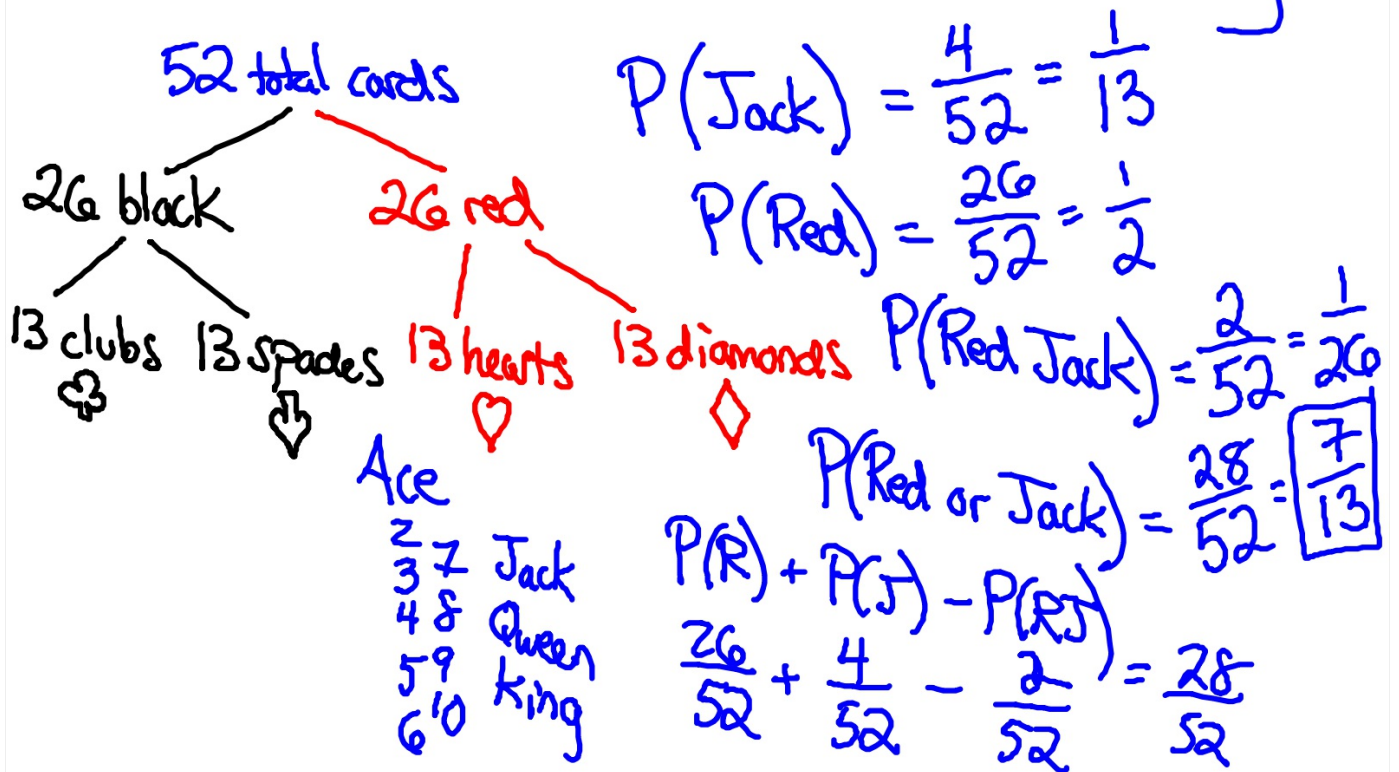 52 total cards
26 black 26 red
13 clubs 13 spades 13 hearts 13 diamonds
Ace
2
3 7 Jack
4 8 Queen
5 9 King
6 10
P(Jack) = 4/52 = 1/13
P(Red) = 26/52 = 1/2
P(Red Jack) = 2/52 = 1/26
P(Red or Jack) = 28/52 = 7/13
P(R) + P(J) - P(RJ)
26/52 + 4/52 - 2/52 = 28/52